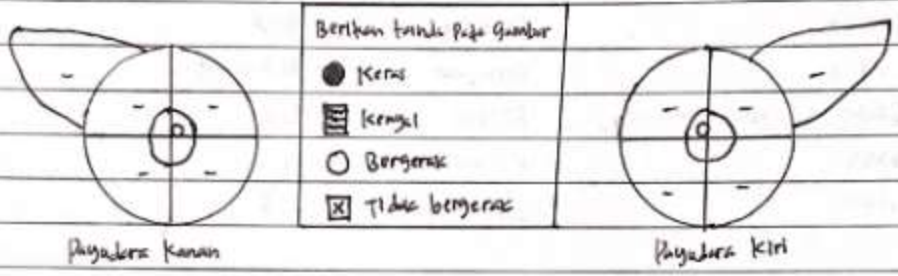 Berikan tanda pada gambar
Keras
Kenyal
Bergerak
Tidak bergerak
Payudara Kanan
Payudara Kiri